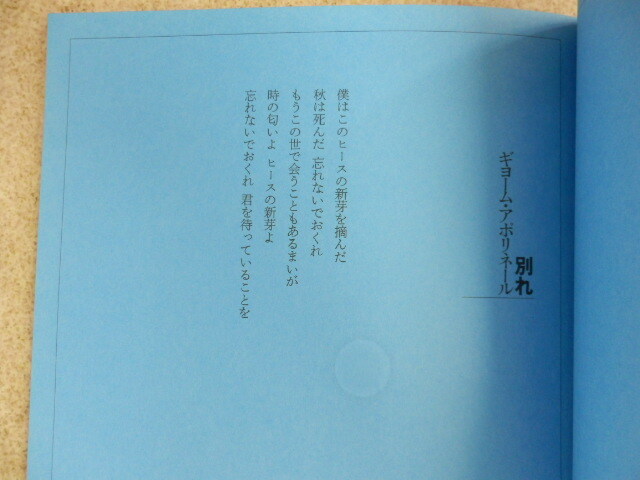 別れ
ギヨーム・アポリネール
僕はこのヒースの新芽を摘んだ
秋は死んだ 忘れないでおくれ
もうこの世で会うこともあるまいが
時の匂いよ ヒースの新芽よ
忘れないでおくれ 君を待っていることを